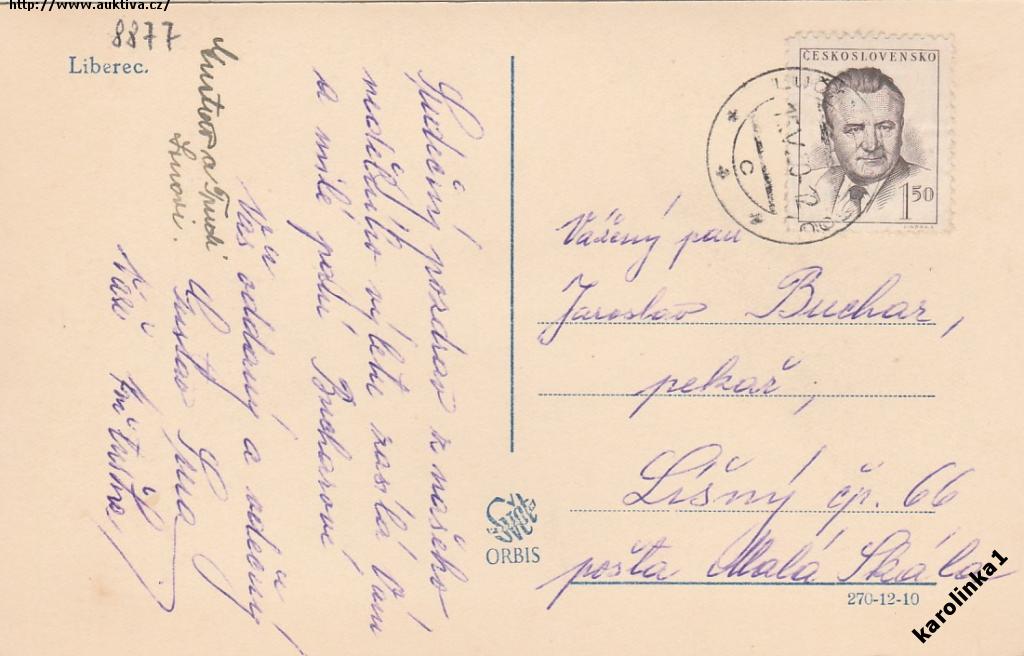 http://www.auktiva.cz/
8877
Liberec.
Srdečný pozdrav z našeho
nedělního výletu zasílá Vám
a milé paní Bucharové
Váš oddaný a vděčný
Gustav
Vaši
ČESKOSLOVENSKO
1 50
Vážený pan
Jaroslav Buchar,
pekař,
Líšný čp. 66
pošta Malá Skála
ORBIS
270-12-10
karolinka1